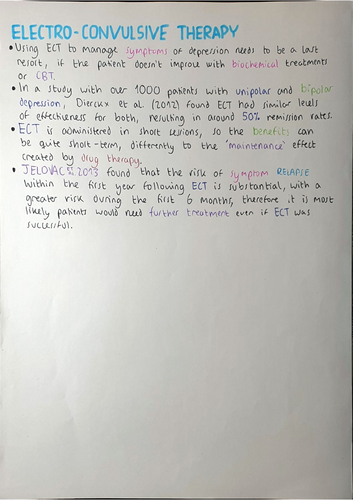 ELECTRO-CONVULSIVE THERAPY
• Using ECT to manage symptoms of depression needs to be a last
resort, if the patient doesn't improve with biochemical treatments
or CBT.
• In a study with over 1000 patients with unipolar and bipolar
depression, Diercux et al. (2012) found ECT had similar levels
of effectiveness for both, resulting in around 50% remission rates.
• ECT is administered in short sessions, so the benefits can
be quite short-term, differently to the 'maintenance' effect
created by drug therapy.
• JELOVAC et al. 2013 found that the risk of symptom RELAPSE
within the first year following ECT is substantial, with a
greater risk during the first 6 months, therefore it is most
likely patients would need further treatment even if ECT was
successful.